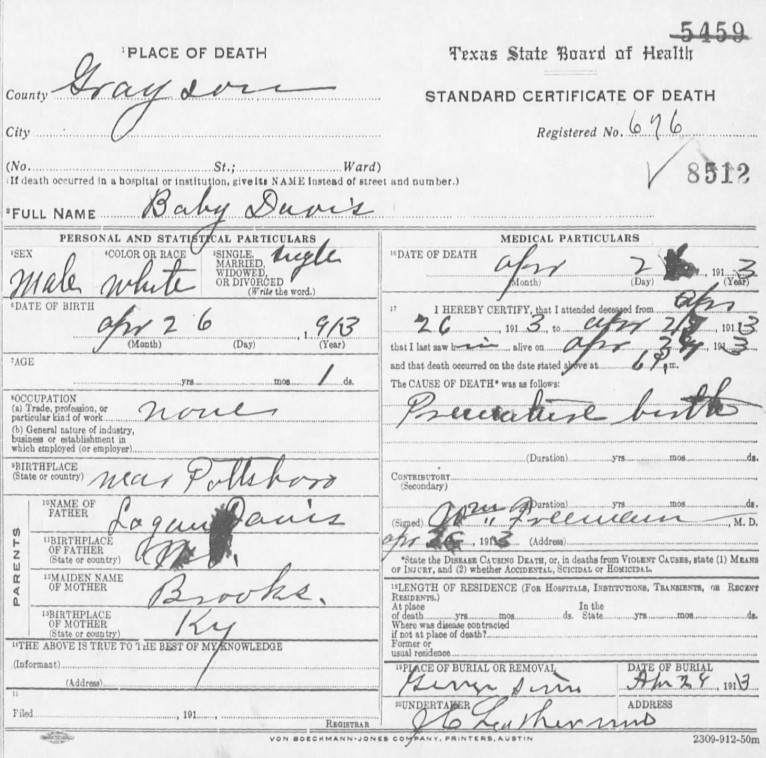 5459
¹PLACE OF DEATH
Texas State Board of Health
County Grayson
STANDARD CERTIFICATE OF DEATH
City
Registered No. 676
(No. St.; Ward)
(If death occurred in a hospital or institution, give its NAME instead of street and number.)
8512
²FULL NAME Baby Davis
PERSONAL AND STATISTICAL PARTICULARS
³SEX
Male
⁴COLOR OR RACE
White
⁵SINGLE, MARRIED, WIDOWED, OR DIVORCED
(Write the word.)
single
⁶DATE OF BIRTH
apr 26, 1913
(Month) (Day) (Year)
⁷AGE
yrs mos 1 ds.
⁸OCCUPATION
(a) Trade, profession, or
particular kind of work none
(b) General nature of industry,
business or establishment in
which employed (or employer)
⁹BIRTHPLACE
(State or country) near Pottsboro
PARENTS
¹⁰NAME OF
FATHER Logan Davis
¹¹BIRTHPLACE
OF FATHER
(State or country)
¹²MAIDEN NAME
OF MOTHER Brooks.
¹³BIRTHPLACE
OF MOTHER
(State or country) Ky
¹⁴THE ABOVE IS TRUE TO THE BEST OF MY KNOWLEDGE
(Informant)
(Address)
15
Filed , 191
REGISTRAR
MEDICAL PARTICULARS
¹⁶DATE OF DEATH
apr 2 , 1913
(Month) (Day) (Year)
17 I HEREBY CERTIFY, that I attended deceased from apr
26 1913, to apr 1913
that I last saw h im alive on apr 1913
and that death occurred on the date stated above at 6 P. m.
The CAUSE OF DEATH* was as follows:
Premature birth
(Duration) yrs mos ds.
CONTRIBUTORY
(Secondary)
(Duration) yrs mos ds.
(Signed) Wm Freeman, M. D.
apr 1913 (Address)
*State the DISEASE CAUSING DEATH, or, in deaths from VIOLENT CAUSES, state (1) MEANS
OF INJURY, and (2) whether ACCIDENTAL, SUICIDAL OR HOMICIDAL.
¹⁸LENGTH OF RESIDENCE (FOR HOSPITALS, INSTITUTIONS, TRANSIENTS, OR RECENT
RESIDENTS.)
At place In the
of death yrs mos ds. State yrs mos ds.
Where was disease contracted
if not at place of death?
Former or
usual residence
¹⁹PLACE OF BURIAL OR REMOVAL
DATE OF BURIAL
Apr 1913
²⁰UNDERTAKER
ADDRESS
VON BOECKMANN-JONES COMPANY, PRINTERS, AUSTIN
2309-912-50m